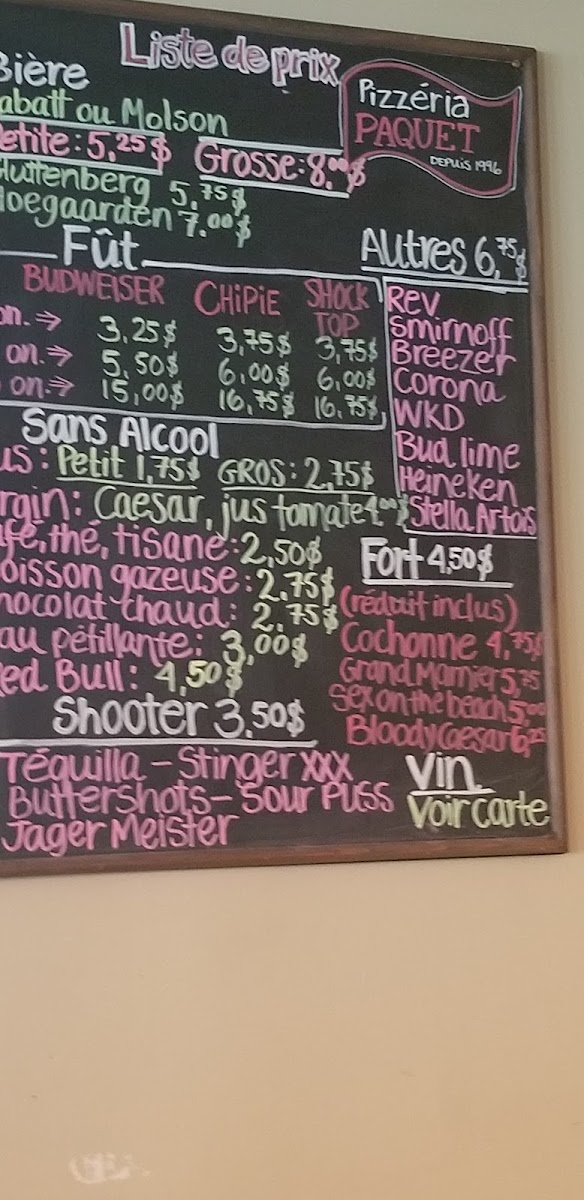 Liste de prix
Pizzéria
PAQUET
DEPUIS 1996
Bière
abatt ou Molson
etite: 5,25$ Grosse: 8,00$
luttenberg 5,75$
Hoegaarden 7.00$
Fût
BUDWEISER CHIPIE SHOCK TOP
on.→ 3,25$ 3,75$ 3,75$
on.→ 5,50$ 6,00$ 6,00$
on.→ 15,00$ 16,75$ 16,75$
Sans Alcool
us: Petit 1,75$ GROS: 2,75$
rgin: Caesar, jus tomate 4,00$
afé, thé, tisane: 2,50$
oisson gazeuse: 2.75$
hocolat chaud: 2.75$
au pétillante: 3,00$
ed Bull: 4,50$
Shooter 3.50$
Téquilla - Stinger XXX
Buttershots - Sour Puss
Jager Meister
Autres 6,75$
Rev
Smirnoff
Breezer
Corona
WKD
Bud lime
Heineken
Stella Artois
Fort 4,50$
(réduit inclus)
Cochonne 4,75$
Grand Marnier 5,75
Sex on the beach 5,00
Bloody Caesar 6,25
Vin
Voir carte